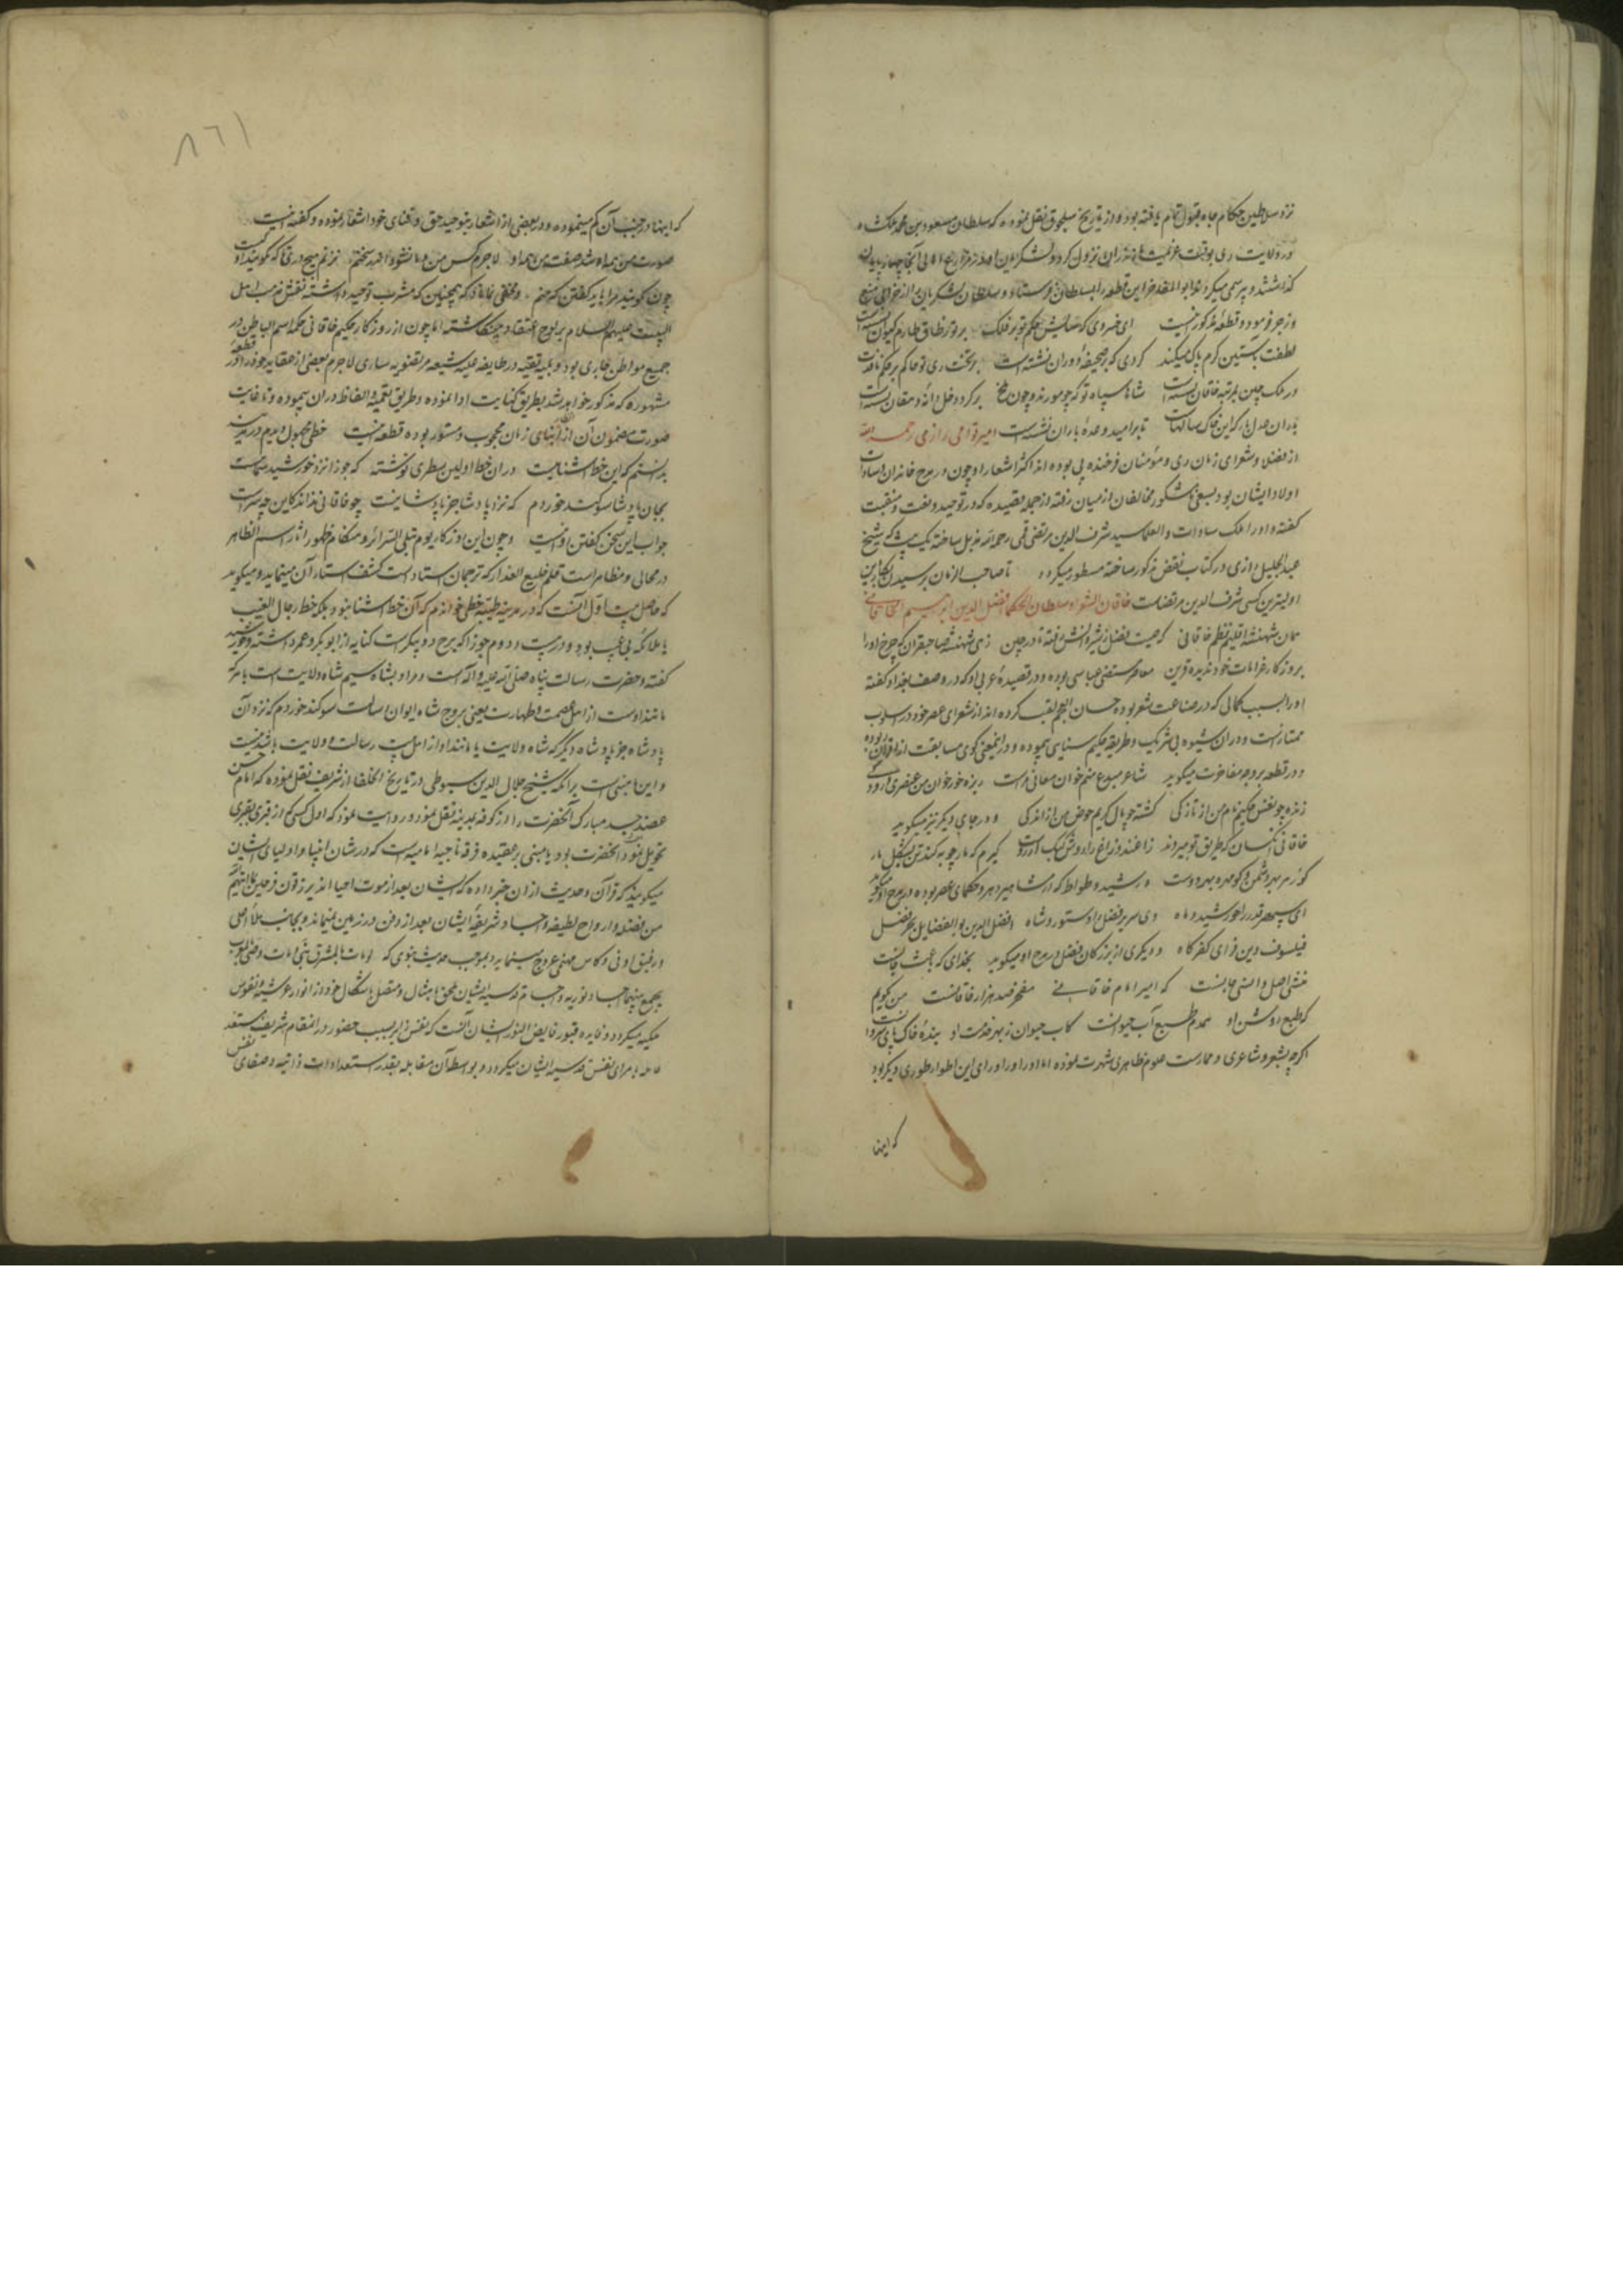 نزد سلاطین و حکام جاه و قبول تمام یافته بود و از تاریخ سلجوق نقل نموده که سلطان مسعود بن محمد ملکشاه
در ولایت ری بوقت عزیمت مازندران نزول کرد و لشکریان او در مزارع اهالی آنجا چهارپایان
گذاشتند و بیرسمی میکردند ابوالمفاخر این قطعه را بسلطان فرستاد و سلطان لشکریان را از خرابی منع
و زجر فرمود و قطعهٔ مذکور اینست ای خسروی که سایش حکم تو بر فلک بر توز طاق طارم کیوان نشسته است
لطفت بآستین کرم پاک میکند گردی که بر صحیفهٔ دوران نشسته است بر تخت ری تو حاکم بر حکم نافذت
در ملک چین بمرتبه خاقان نشسته است شاها سپاه تو که چو مورند و چون ملخ بر گرد دخل دانه دهقان نشسته است
باران عدل بار که این خاک سالهاست تا بر امید وعدهٔ باران نشسته است امیر قوامی رازی رحمه الله
از فضلا و شعرای زمان ری و مؤمنان فرخنده پی بوده اند اکثر اشعار او چون در مدح خاندان و سادات
اولاد ایشان بود بسعی نامشکور مخالفان از میان رفته از جمله قصیده که در توحید و نعت و منقبت
گفته و او را ملک سادات و العلما سید شرف الدین مرتضی قمی رحمه الله مذیل ساخته یک بیت که شیخ
عبدالجلیل رازی در کتاب نقض مذکور ساخته مسطور میگردد تا صاحب الزمان برسیدن بکار این
اولیترین کسی شرف الدین مرتضاست خاقان الشعرا و سلطان الحکما افضل الدین ابراهیم الخاقانی
همان شهنشه اقلیم نظم خاقانی که صیت فضل ز شروانش رفته تا در چین زهی شهنشه صاحبقران که چرخ او را
بروز کار خرامات خود ندیده قرین معاصر مستضی عباسی بوده و در قصیدهٔ عربی او که در وصف بغداد گفته
او را بسبب کمالی که در صناعت شعر بوده حسان العجم لقب کرده اند از شعرای عصر خود در اسلوب
ممتاز است و در آن شیوه بی شریک و طریقه حکیم سنایی پیموده و در آن معنی گوی مسابقت از اقران ربوده
و در قطعه بر وجه مفاخرت میگوید شاعر مبدع منم خوان معانی مراست ریزه خور خوان من عنصری و رودکی
زنده چو نفس حکیم نام من از تازگی گشته چو مال کریم حرص من از اندکی و در جای دیگر نیز میگوید
خاقانی آن کسان که طریق تو میروند زاغند و زاغ را روش کبک آرزوست گیرم که مارچوبه کند تن بشکل مار
کو زهر بهر دشمن و کو مهره بهر دوست و رشید وطواط که از مشاهیر دهر و حکمای عصر بوده در مدح او میگوید
ای سپهر قدر را خورشید و ماه وی سریر فضل را دستور و شاه افضل الدین بوالفضایل بحر فضل
فیلسوف دین فزای کفر کاه و دیگری از بزرگان فضل در مدح او میگوید بخدای که بعث
منشی اصل و انسی جانست که امیر امام خاقانی مفخر صد هزار خاقانست من کویم
که طبع روشن او همدم طبع آب حیوانست کاب حیوان ز بهر خدمت او بندهٔ خاک پای شروانست
اگرچه بشعر و شاعری و ممارست علوم ظاهری شهرت نموده اما او را ورای این اطوار طوری دیگر بود
که اینها
۸۶۱
که اینها در جنب آن کم مینموده و در بعضی از اشعار بتوحید حق و فنای خود اشعار نموده و گفته اینست
صورت من همه او شد صفت من همه او لاجرم کس من و ما نشنود اندر سخنم نزنم هیچ دری تا که نگویند آن کیست
چون بگویند مرا باید گفتن که منم و مخفی نماناد که همچنان که مشرب توحید داشته نقش مذهب اهل
البیت علیهم السلام بر لوح اعتقاد مینگاشته اما چون از روزگار حکیم خاقانی حکم اسم الباطن در
جمیع مواطن جاری بود و بلیه تقیه در طایفه علیه شیعه مرتضویه ساری لاجرم بعضی از عقاید خود را در قطعهٔ
مشهوره که مذکور خواهد شد بطریق کنایت ادا نموده و طریق تعمیه و الغاز در آن پیموده و تا غایت
صورت مضمون آن از انظار ابنای زمان محجوب و مستور بوده قطعه اینست خطی مجهول دیدم در مدینه
بدانستم که این خط آشنا نیست در آن خط اولین سطری نوشته که جوزا نزد خورشید سماست
بجان پادشا سوگند خوردم که نزد پادشا جز پادشا نیست چو خاقانی نداند کاین چه سرست
جواب این سخن گفتن روا نیست و چون این روزگار یوم تبلی السرائر و هنگام ظهور آثار اسم الظاهر
در مجالی و مظاهر است قلم خلیع العذار که ترجمان استاد است کشف استار آن مینماید و میگوید
که حاصل بیت اول آنست که در مدینه طیبه خطی خواندم که آن خط آشنا نبود بلکه خط رجال الغیب
یا ملائکه بی عیب بود و در بیت دوم جوزا که برج دو پیکر است کنایه از ابوبکر و عمر داشته و خورشید
گفته و حضرت رسالت پناه صلی الله علیه و آله است و مراد بشاه سیم شاه ولایت است یا هر که
مانند اوست از اهل عصمت و طهارت یعنی بروح شاه ایوان رسالت سوگند خوردم که نزد آن
پادشاه جز پادشاه دیگر که شاه ولایت یا مانند او از اهل بیت رسالت و ولایت باشد نیست
و این مبنی است بر آنکه شیخ جلال الدین سیوطی در تاریخ الخلفا از شریف نقل نموده که امام حسن
جسد مبارک آنحضرت را از کوفه بمدینه نقل نمود و روایت نموده که اول کسی که از قبری بقبری
تحویل نمود آنحضرت بود یا مبنی بر عقیده فرقه ناجیه امامیه است که در شان انبیا و اولیای ایشان
میگویند که قرآن و حدیث از آن خبر داده که ایشان بعد از موت احیا اند یرزقون فرحین بما آتیهم الله
من فضله و ارواح لطیفه و اجساد شریفهٔ ایشان بعد از دفن در زمین نمیماند و بجانب ملأ اعلی
و رفیق اوفی و کاس مهنی عروج مینماید و بموجب حدیث نبوی که لو مات بالمشرق نبی و مات وصی بالمغرب
یجمع بینهما اجساد نوریه و اجسام قدسیه ایشان ملحق بامثال و متصل باشکال خود از انوار عرشیه و نفوس
ملکیه میگردد و فایده قبور فایض النور ایشان آنست که نفس زایر بسبب حضور در آن مقام شریف مستعد
مقابله با مرای نفس قدسیه ایشان میگردد و بواسطه آن مقابله بقدر استعدادات ذاتیه و صفای نفس